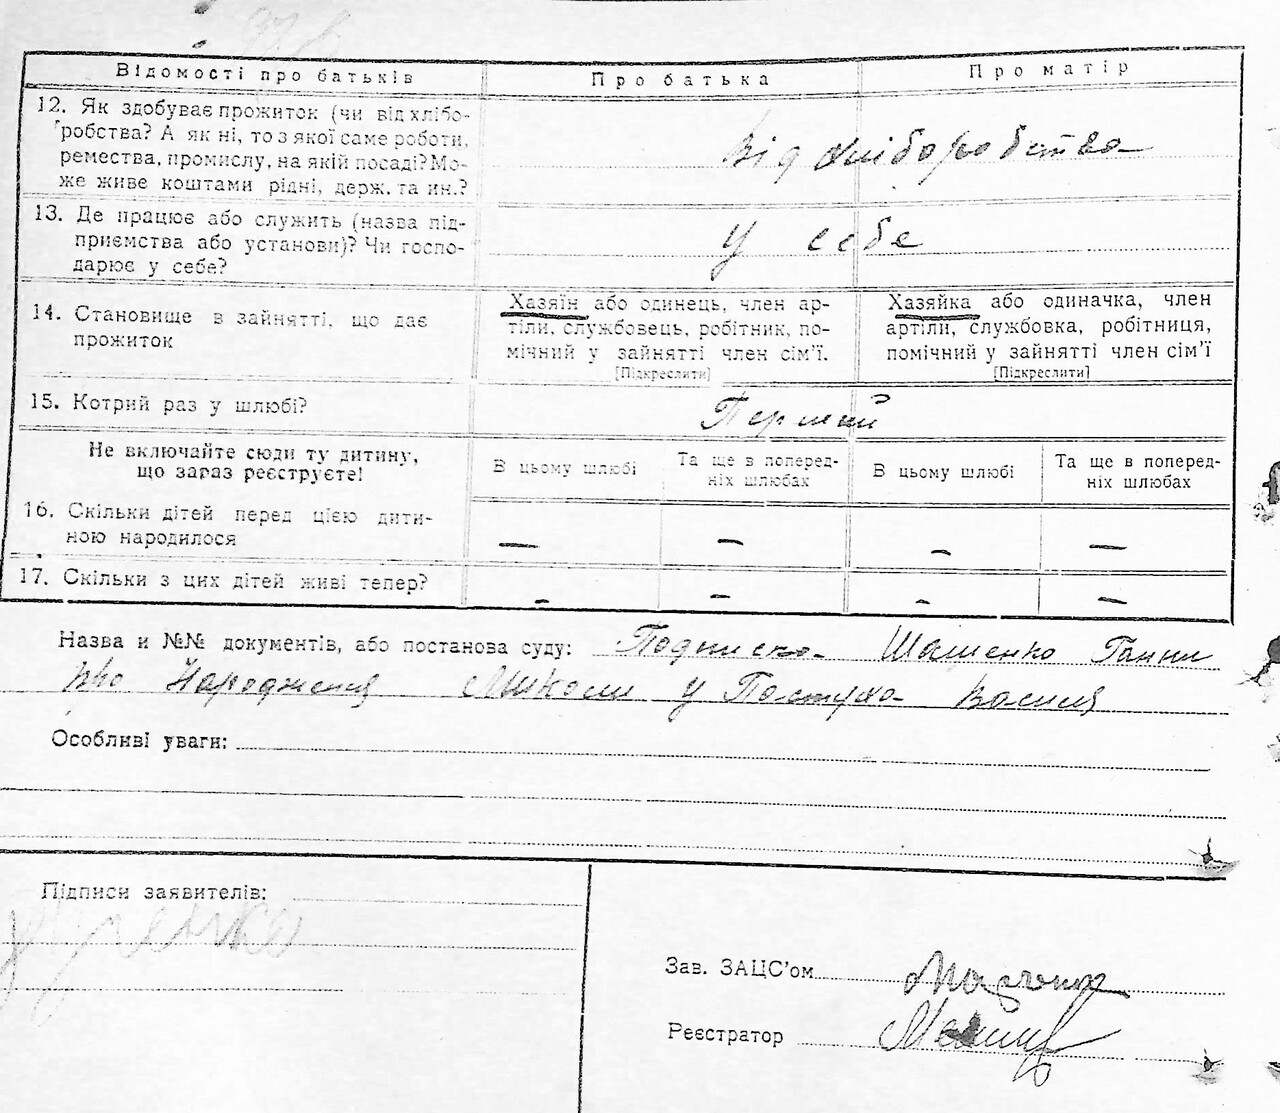 Відомості про батьків Про батька Про матір
12. Як здобуває прожиток (чи від хлібо-
робства? А як ні, то з якої саме роботи,
ремества, промислу, на якій посаді? Мо-
же живе коштами рідні, держ. та ин.?
Від хліборобства
13. Де працює або служить (назва під-
приємства або установи)? Чи госпо-
дарює у себе?
у себе
14. Становище в зайнятті, що дає
прожиток
Хазяїн або одинець, член ар-
тіли, службовець, робітник, по-
мічний у зайнятті член сім'ї.
[Підкреслити]
Хазяйка або одиначка, член
артіли, службовка, робітниця,
помічний у зайнятті член сім'ї
[Підкреслити]
15. Котрий раз у шлюбі? Перший
Не включайте сюди ту дитину,
що зараз реєструєте!
В цьому шлюбі
Та ще в поперед-
ніх шлюбах
В цьому шлюбі
Та ще в поперед-
ніх шлюбах
16. Скільки дітей перед цією дити-
ною народилося — — — —
17. Скільки з цих дітей живі тепер? — — — —
Назва и №№ документів, або постанова суду: Подписка Шашенко Ганни
про Народження Миколи у Пастуха Василя
Особливі уваги:
Підписи заявителів:
Зав. ЗАЦС'ом
Реєстратор